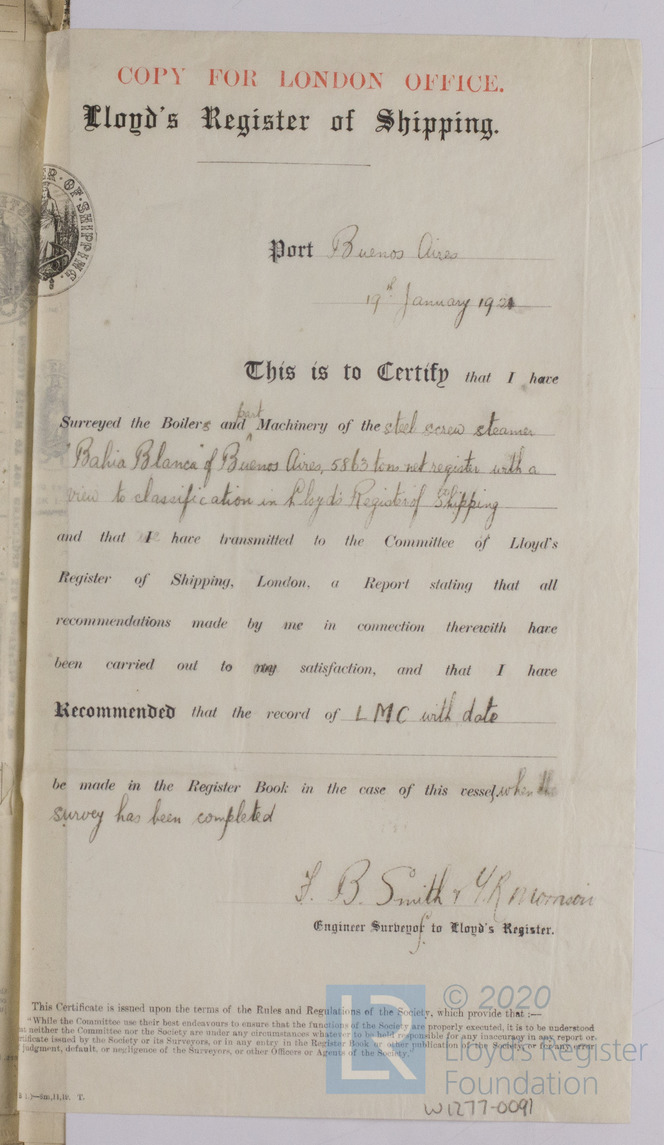 COPY FOR LONDON OFFICE.
Lloyd's Register of Shipping.
R·OF·SHIPPING.
Port Buenos Aires
19th January 1921
This is to Certify that I have
part
Surveyed the Boilers and Machinery of the steel screw steamer
"Bahia Blanca" of Buenos Aires, 5863 tons net register with a
view to classification in Lloyd's Register of Shipping
and that I have transmitted to the Committee of Lloyd's
Register of Shipping, London, a Report stating that all
recommendations made by me in connection therewith have
been carried out to my satisfaction, and that I have
Recommended that the record of LMC with date
be made in the Register Book in the case of this vessel, when the
survey has been completed
F. B. Smith & Y R Morrison
Engineer Surveyor to Lloyd's Register.
This Certificate is issued upon the terms of the Rules and Regulations of the Society, which provide that :—
"While the Committee use their best endeavours to ensure that the functions of the Society are properly executed, it is to be understood
at neither the Committee nor the Society are under any circumstances whatever to be held responsible for any inaccuracy in any report or
rtificate issued by the Society or its Surveyors, or in any entry in the Register Book or other publication of the Society or for any error
judgment, default, or negligence of the Surveyors, or other Officers or Agents of the Society."
—6m,11,19. T.
LR
© 2020
Lloyd's Register
Foundation
W1277-0091